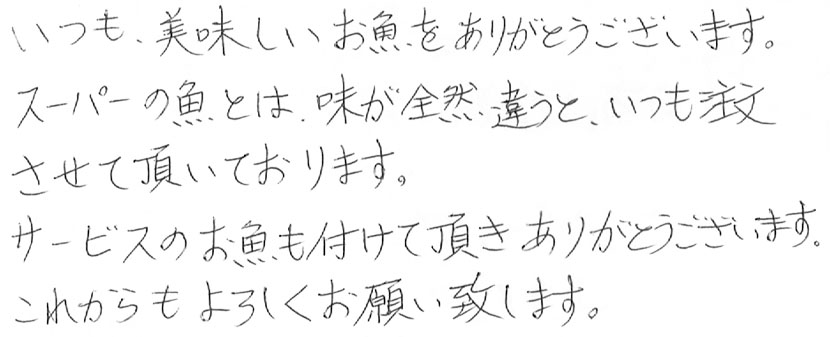 いつも、美味しいお魚をありがとうございます。
スーパーの魚とは、味が全然違うと、いつも注文
させて頂いております。
サービスのお魚も付けて頂きありがとうございます。
これからもよろしくお願い致します。